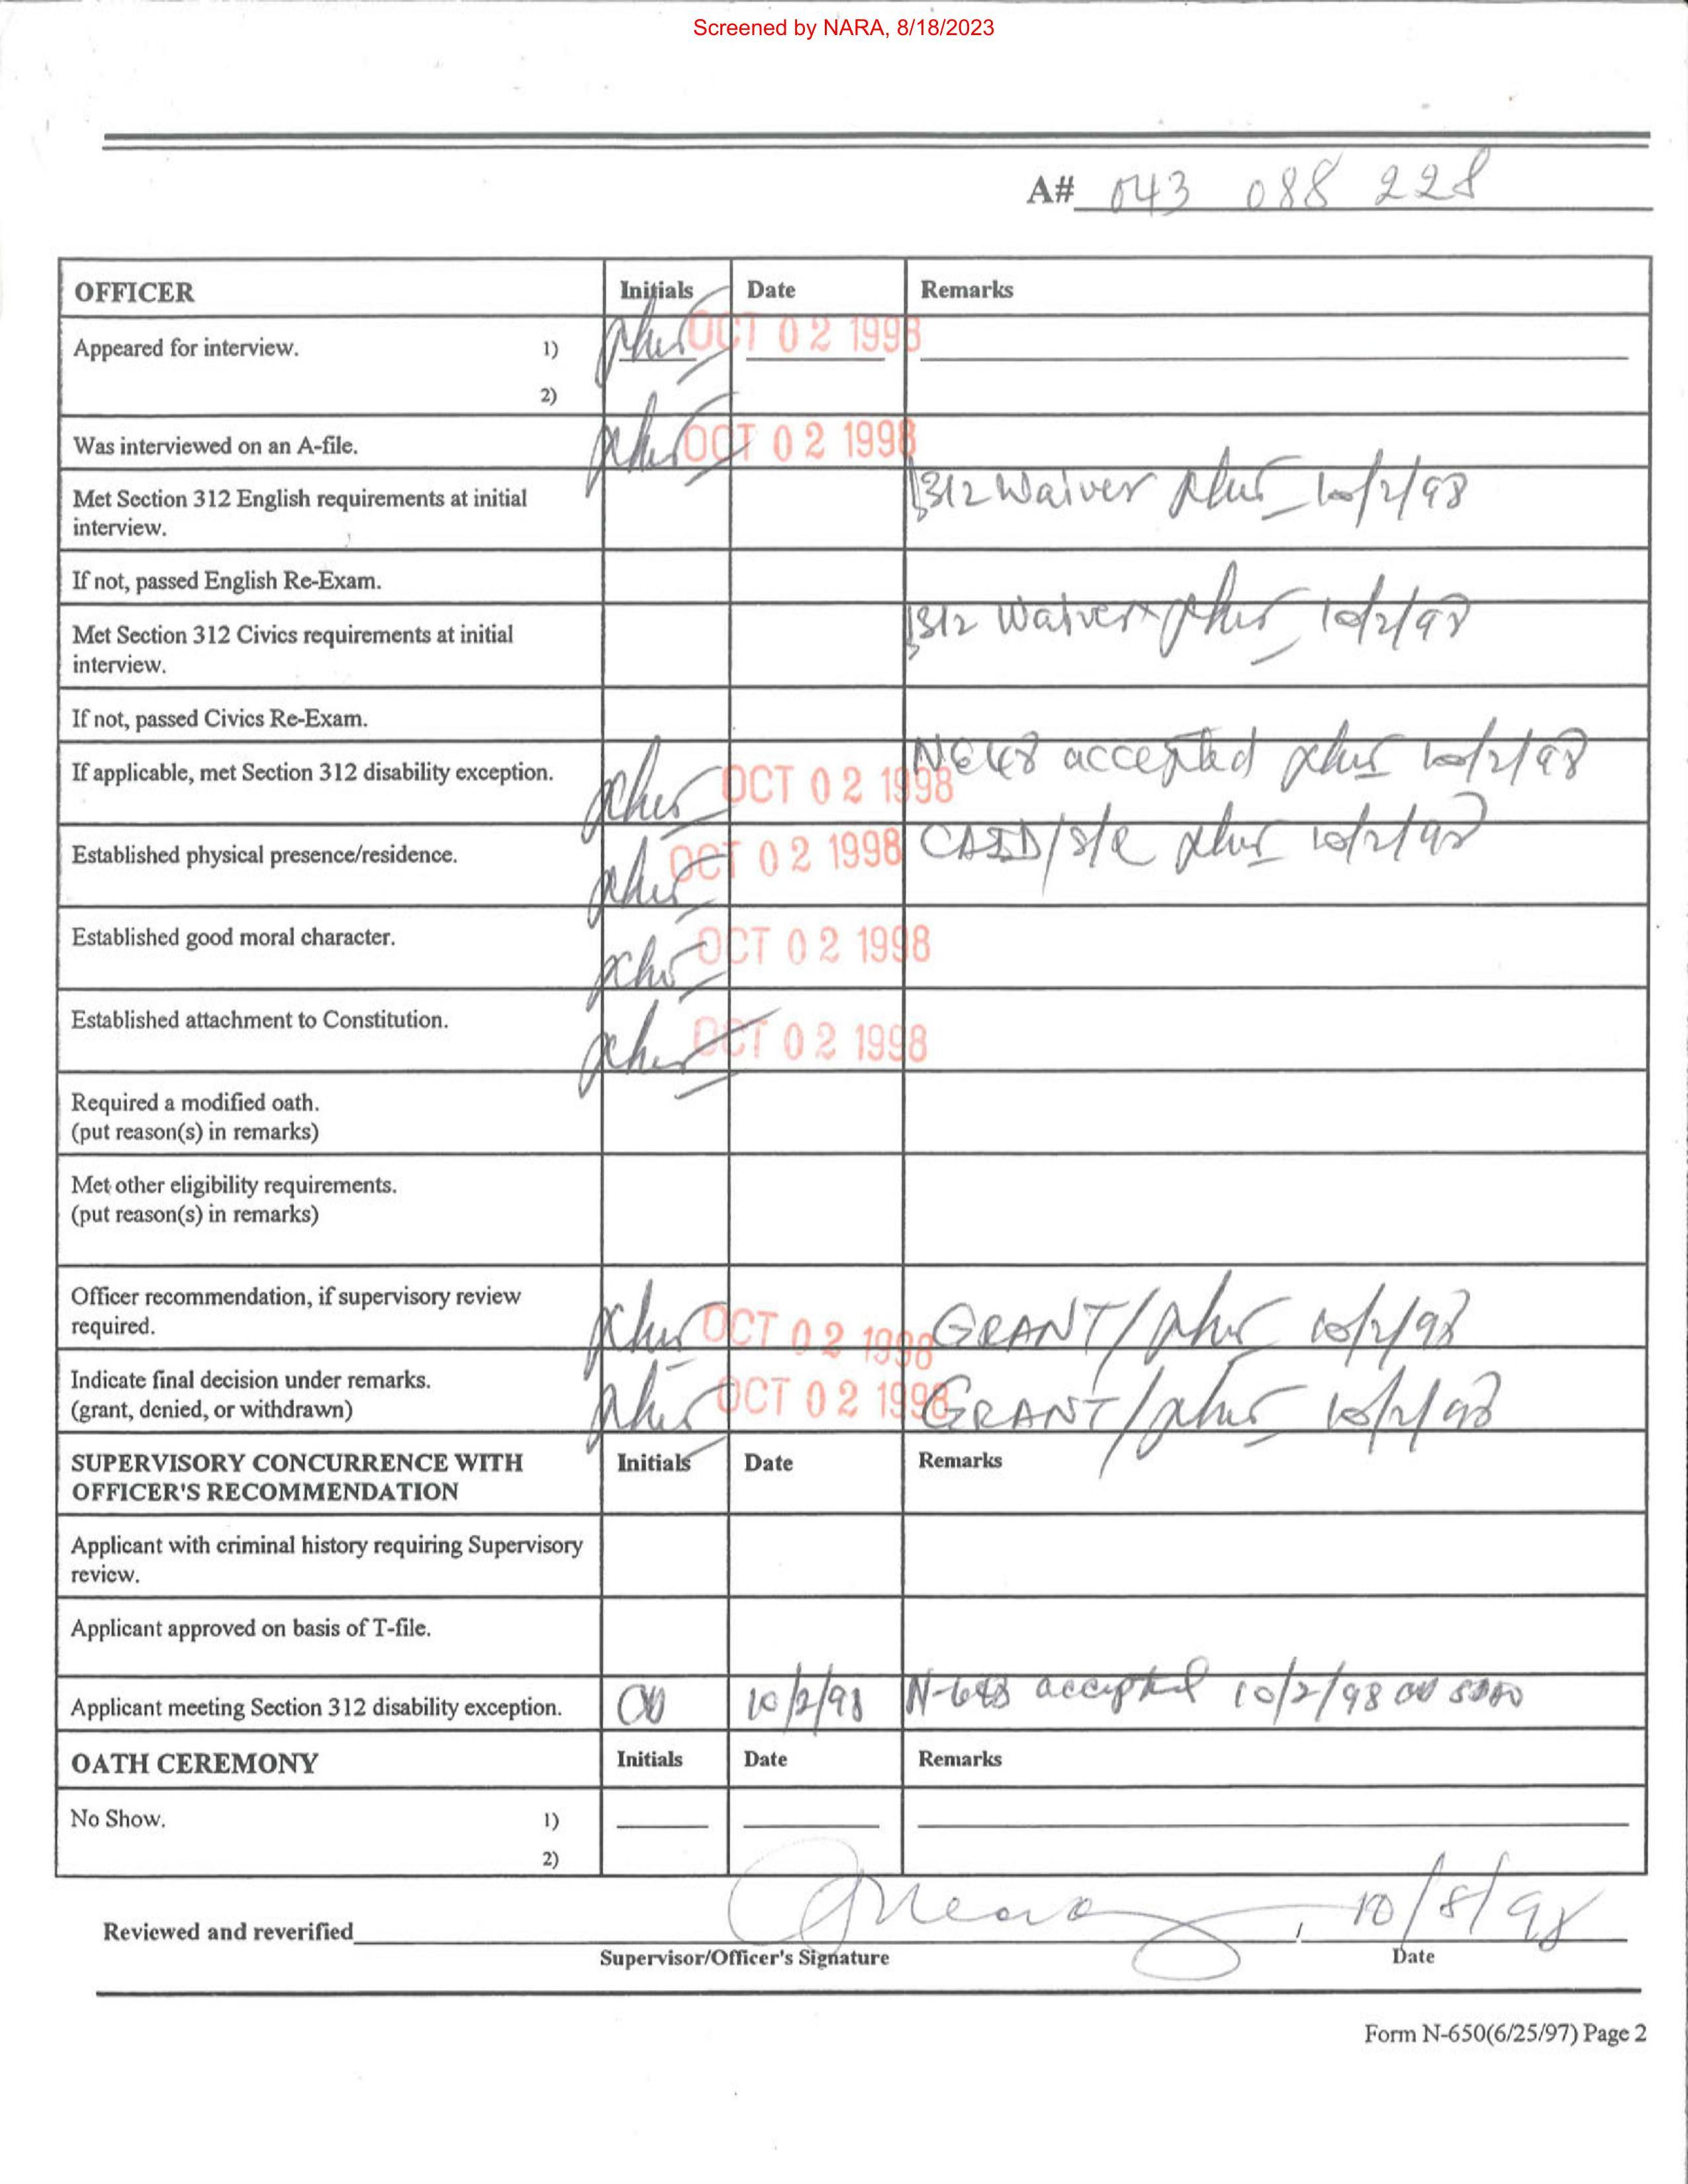 Screened by NARA, 8/18/2023
A# 043 088 228
OFFICER Initials Date Remarks
Appeared for interview. 1) OCT 02 1998
2)
Was interviewed on an A-file. OCT 02 1998
Met Section 312 English requirements at initial 312 Waiver 10/2/98
interview.
If not, passed English Re-Exam.
Met Section 312 Civics requirements at initial 312 Waiver 10/2/98
interview.
If not, passed Civics Re-Exam.
If applicable, met Section 312 disability exception. OCT 02 1998 N648 accepted 10/2/98
Established physical presence/residence. OCT 02 1998 10/2/98
Established good moral character. OCT 02 1998
Established attachment to Constitution. OCT 02 1998
Required a modified oath.
(put reason(s) in remarks)
Met other eligibility requirements.
(put reason(s) in remarks)
Officer recommendation, if supervisory review OCT 02 1998 GRANT/ 10/2/98
required.
Indicate final decision under remarks. OCT 02 1998 GRANT/ 10/2/98
(grant, denied, or withdrawn)
SUPERVISORY CONCURRENCE WITH Initials Date Remarks
OFFICER'S RECOMMENDATION
Applicant with criminal history requiring Supervisory
review.
Applicant approved on basis of T-file.
Applicant meeting Section 312 disability exception. 10/2/98 N-648 accepted 10/2/98
OATH CEREMONY Initials Date Remarks
No Show. 1)
2)
Reviewed and reverified 10/8/98
Supervisor/Officer's Signature Date
Form N-650(6/25/97) Page 2